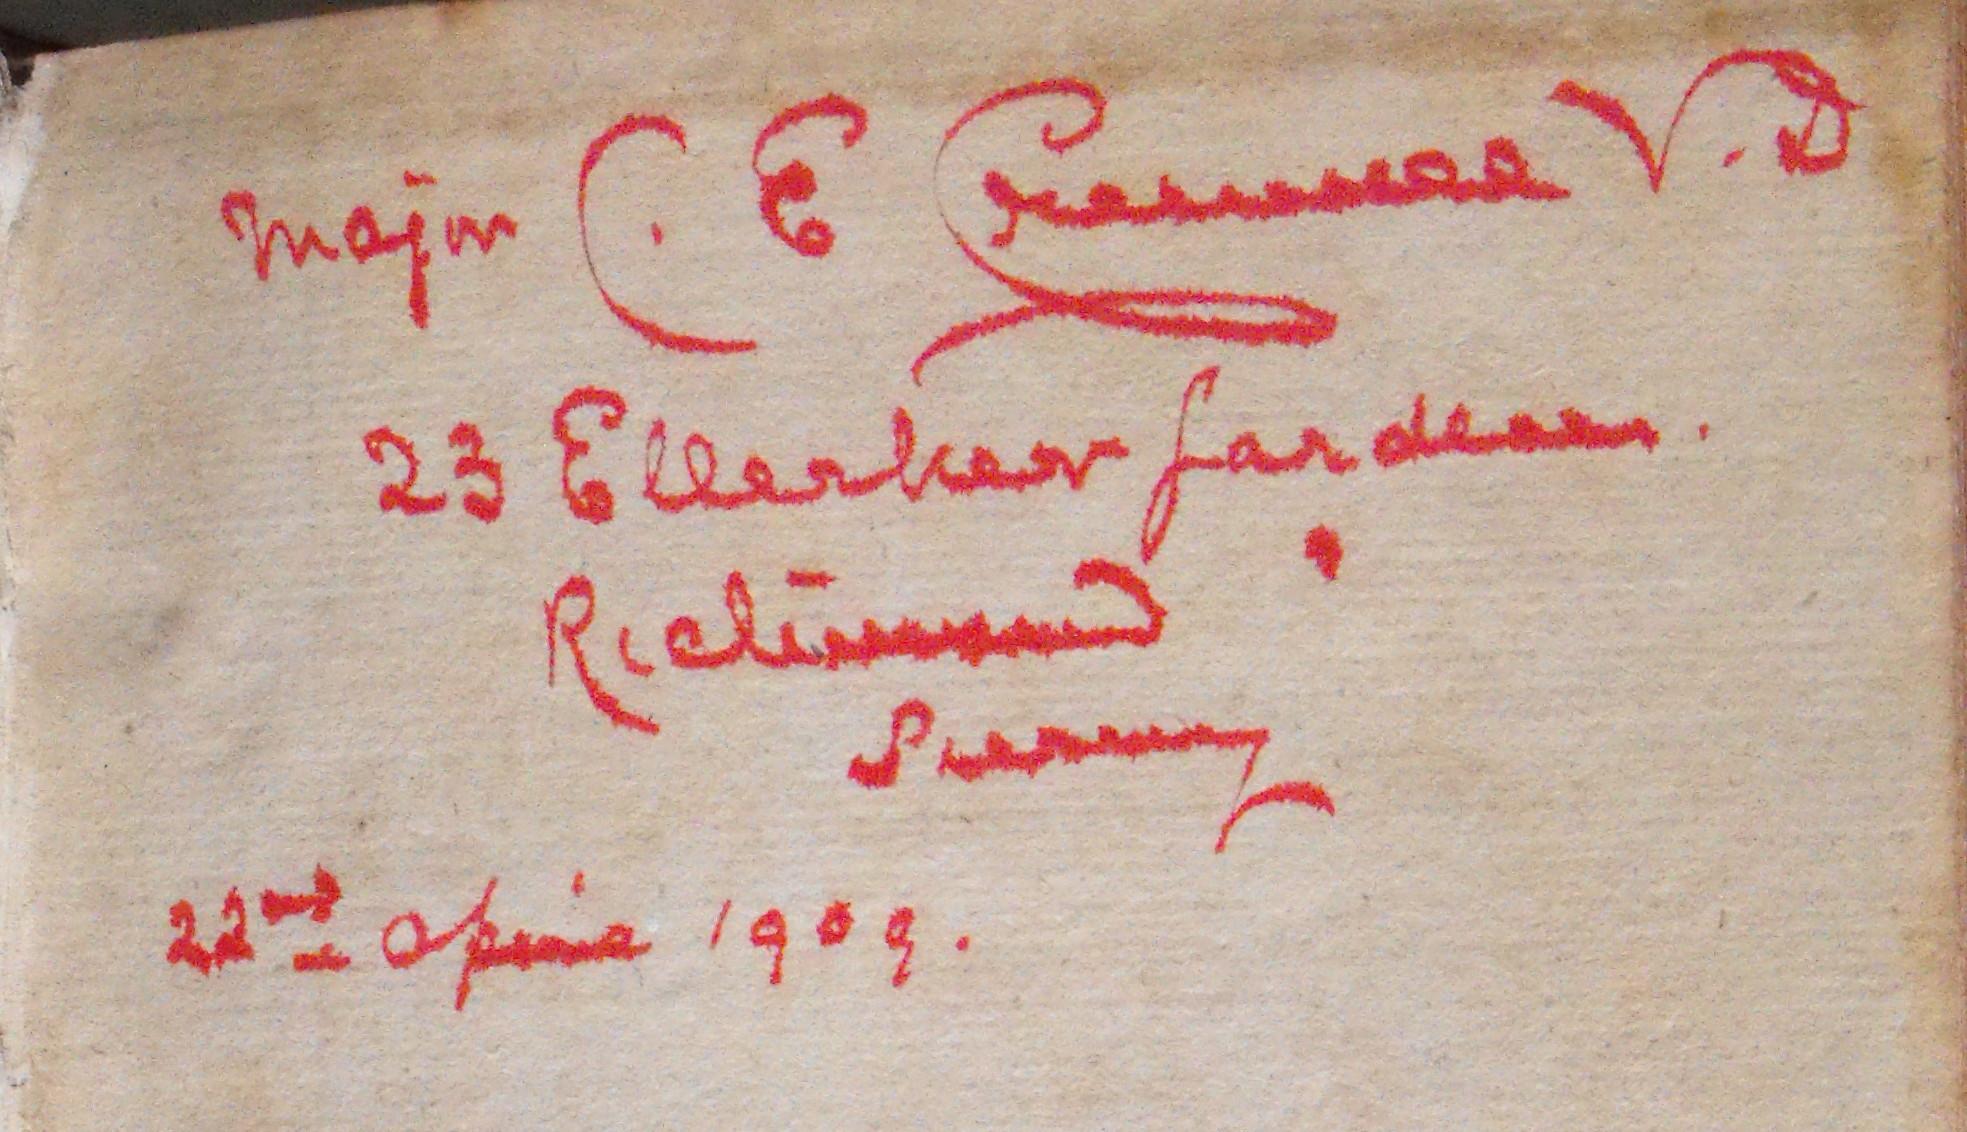 Major C. E V.D
23 Ellerker Gardens.
Richmond
Surrey
22nd April 1909.